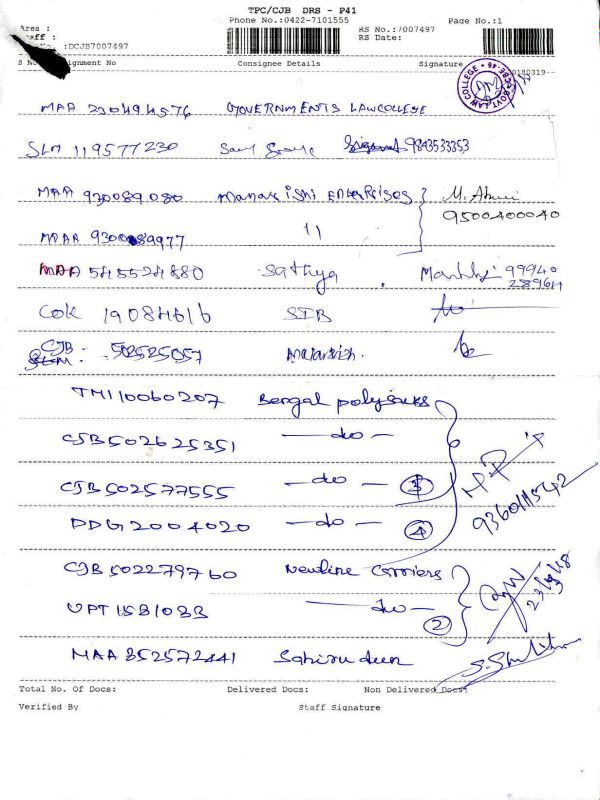 TPC/CJB DRS - P41
Phone No.:0422-7101555 RS No.:7007497 Page No.:1
Area :
RS Date:
:DCJB7007497
S No signment No Consignee Details Signature
GOVT. LAW COLLEGE
MAA 230494576 GOVERNMENTS LAWCOLLEGE
SLM 119577230 9843533353
MAA 930089080 Manas ishi Enterprises M.
9500400040
MAA 930089977 11
MAA 545524880 Sathya 99940
28964
COK 19084616 STB
CJB 502525057
TMI10060207 Bengal polysacks
CJB502625351 -do-
CJB502577555 -do- 3
DDG2004020 -do- 4
CJB502279760 Newline Carriers
UPT1581033 -do- 2
MAA 852572441
Total No. Of Docs: Delivered Docs: Non Delivered Docs:
Verified By Staff Signature